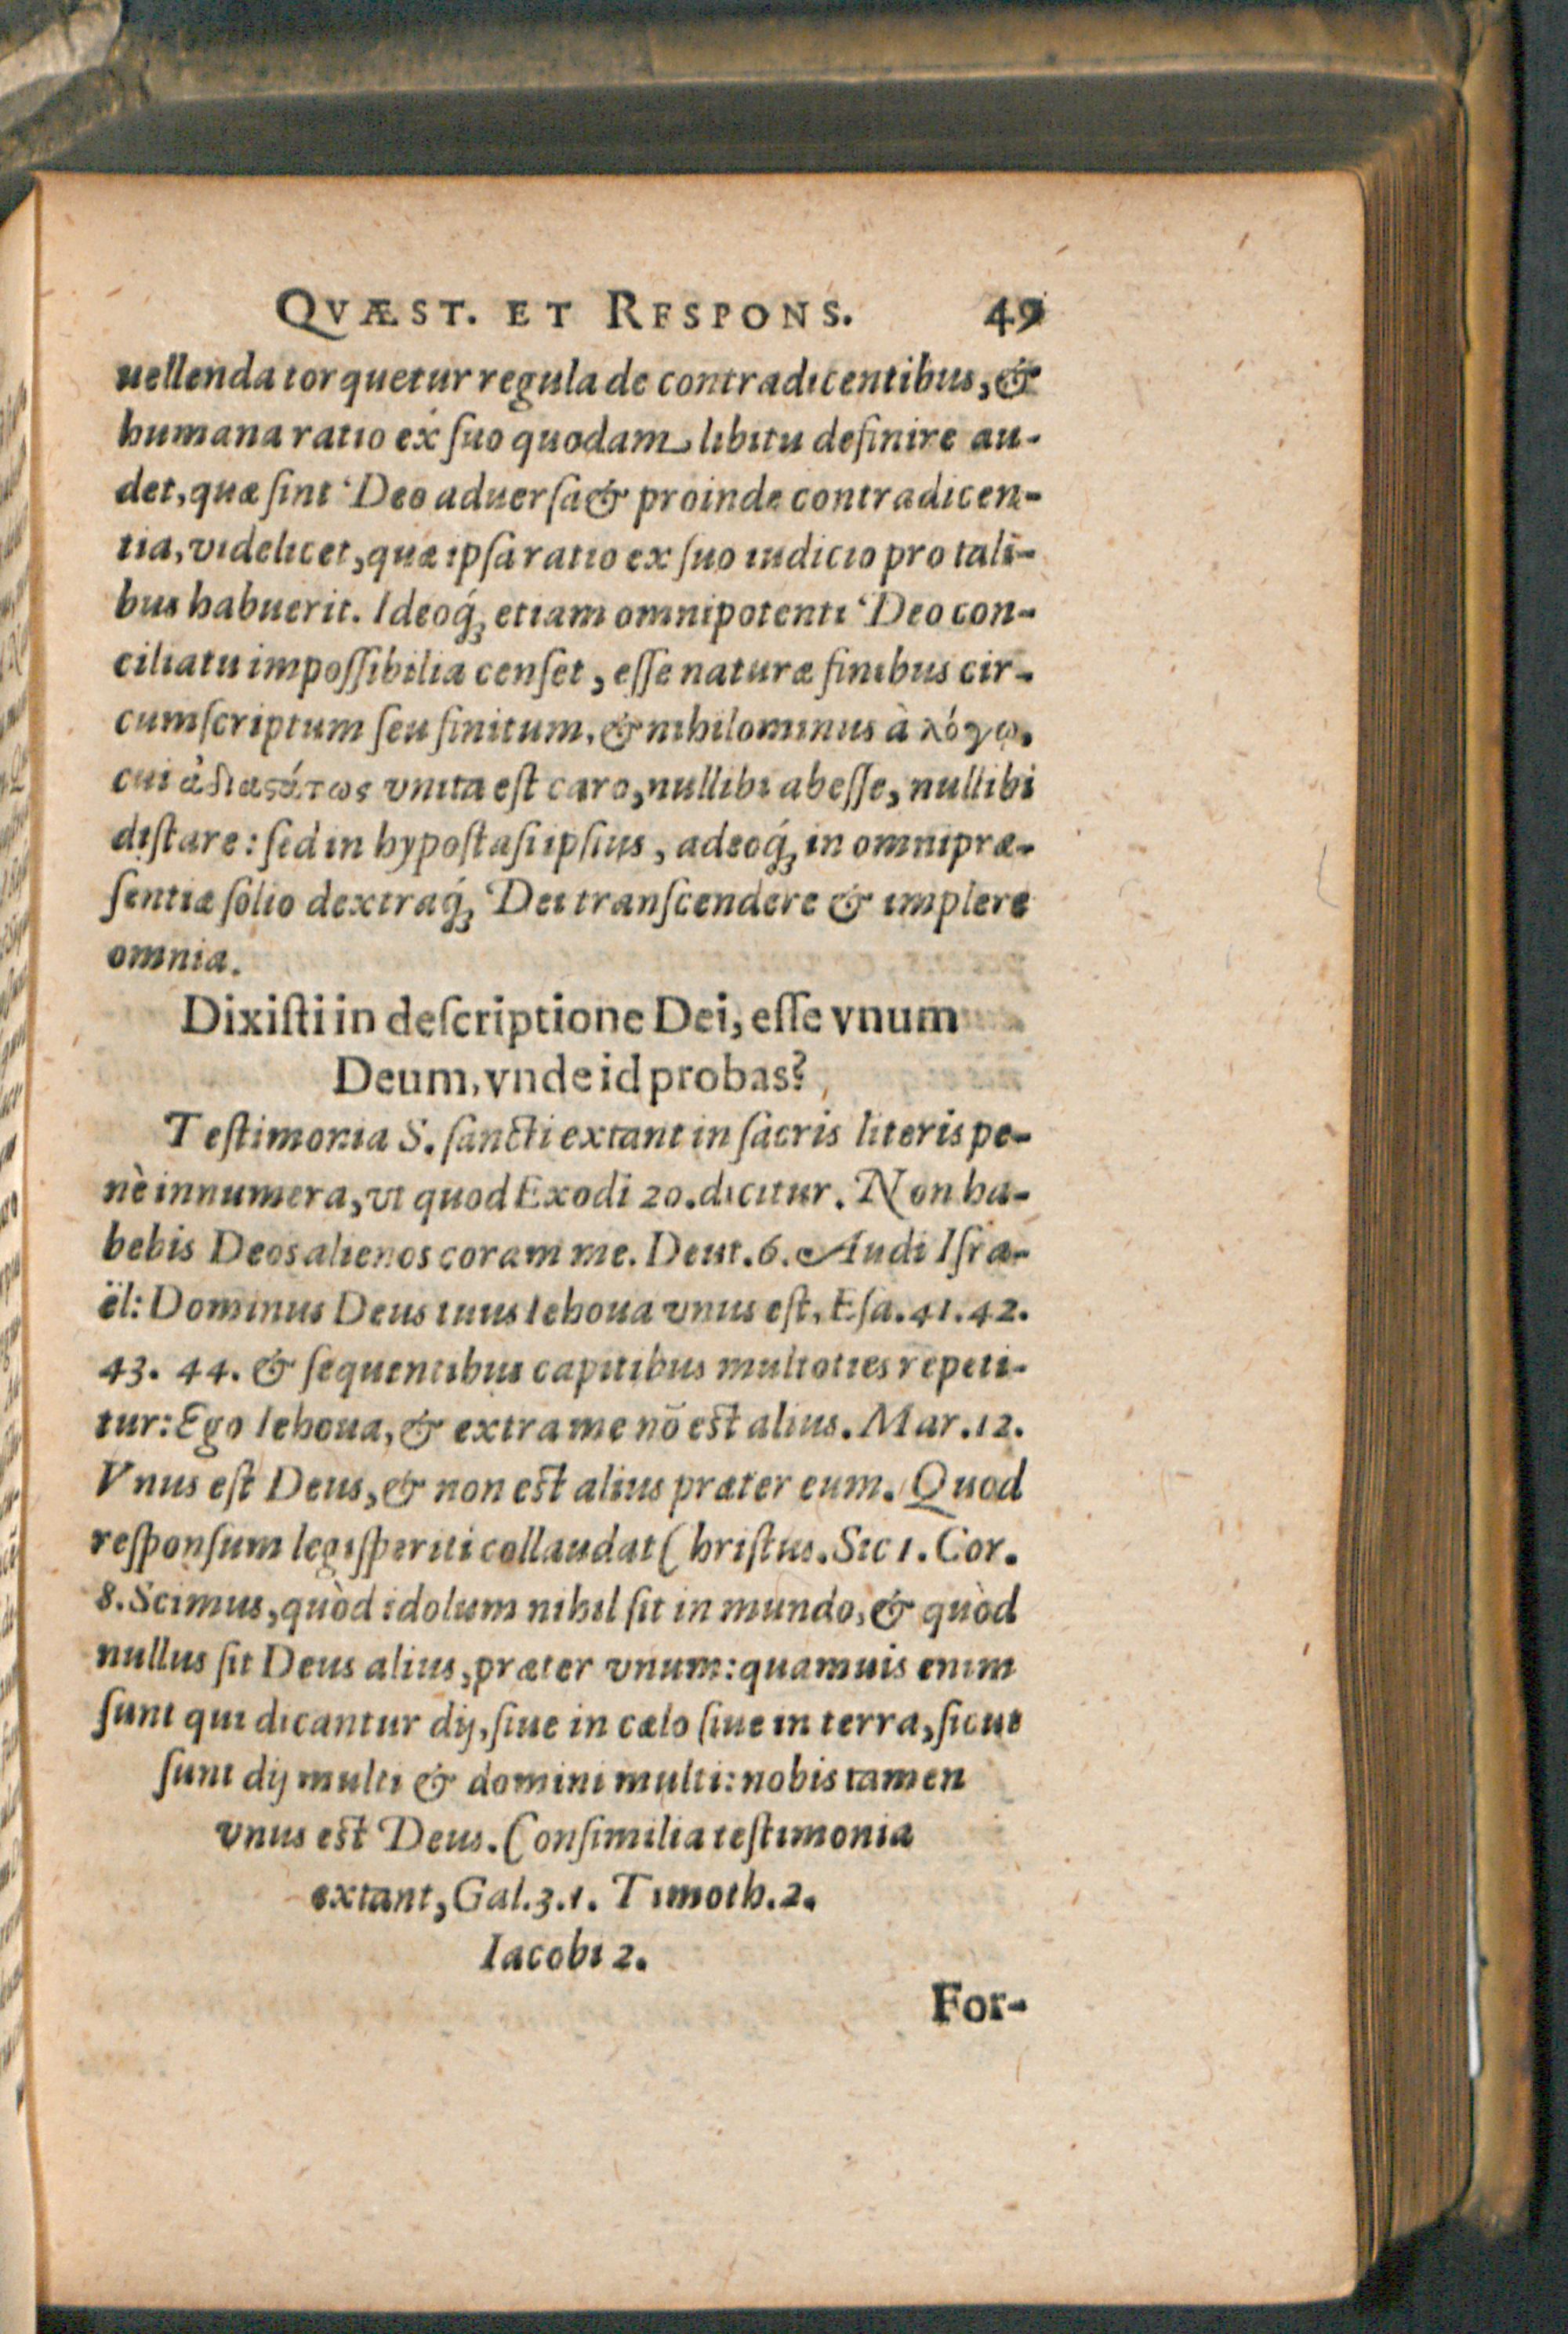 QVÆST. ET RESPONS. 49
uellenda torquetur regula de contradicentibus, &
humana ratio ex suo quodam libitu definire au-
det, quæ sint Deo aduersa & proinde contradicen-
tia, videlicet, quæ ipsa ratio ex suo iudicio pro tali-
bus habuerit. Ideoq́; etiam omnipotenti Deo con-
ciliatu impoſſibilia cenſet, eſſe naturæ finibus cir-
cumſcriptum ſeu finitum, & nihilominus à λόγω,
cui ἀδιαςάτως vnita eſt caro, nullibi abeſſe, nullibi
diſtare: ſed in hypoſtaſi ipſius, adeoq́; in omnipræ-
ſentiæ ſolio dextraq́; Dei tranſcendere & implere
omnia.
Dixiſti in deſcriptione Dei, eſſe vnum
Deum, vnde id probas?
Teſtimonia S. ſancti extant in ſacris literis pe-
nè innumera, vt quod Exodi 20. dicitur. Non ha-
bebis Deos alienos coram me. Deut. 6. Audi Iſra-
ël: Dominus Deus tuus Iehoua vnus eſt, Eſa. 41. 42.
43. 44. & ſequentibus capitibus multoties repeti-
tur: Ego Iehoua, & extra me nō eſt alius. Mar. 12.
Vnus eſt Deus, & non eſt alius præter eum. Quod
reſponſum legiſperiti collaudat Chriſtus. Sic 1. Cor.
8. Scimus, quòd idolum nihil ſit in mundo, & quòd
nullus ſit Deus alius, præter vnum: quamuis enim
ſunt qui dicantur dij, ſiue in cælo ſiue in terra, ſicut
ſunt dij multi & domini multi: nobis tamen
vnus eſt Deus. Conſimilia teſtimonia
extant, Gal. 3. 1. Timoth. 2.
Iacobi 2.
For-